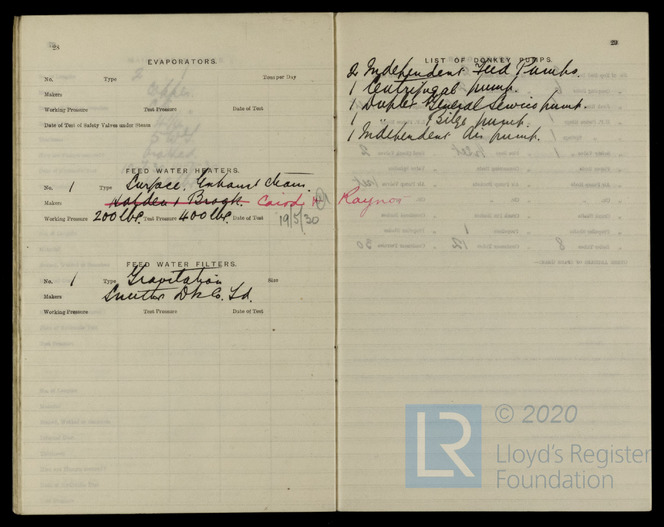 28
EVAPORATORS.
No. Type Tons per Day
Makers
Working Pressure Test Pressure Date of Test
Date of Test of Safety Valves under Steam
FEED WATER HEATERS.
No. 1 Type Surface, Exhaust Steam.
Makers Hayden & Brook. Caird & Rayner
Working Pressure 200 lbs. Test Pressure 400 lbs. Date of Test 19/5/30
FEED WATER FILTERS.
No. 1 Type Gravitation Size
Makers Smiths Dk Co. Ld.
Working Pressure Test Pressure Date of Test
29
LIST OF DONKEY PUMPS.
2 Independent Feed Pumps.
1 Centrifugal pump.
1 Duplex General Service pump.
1 " Bilge pump.
1 Independent Air pump.
LR © 2020
Lloyd's Register
Foundation